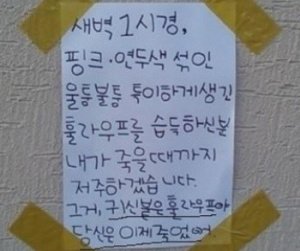 새벽 1시경,
핑크·연두색 섞인
울퉁불퉁 특이하게생긴
훌라우프를 습득하신분
내가 죽을때까지
저주하겠습니다.
그거, 귀신붙은훌라우프야
당신은이제죽었어